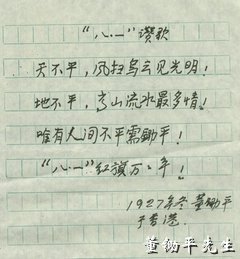 “八·一”讚歌
天不平，风扫乌云见光明！
地不平，高山流水最多情！
唯有人间不平需锄平！
“八·一”红旗万万年！
1927年冬 董锄平
于香港.
董锄平先生